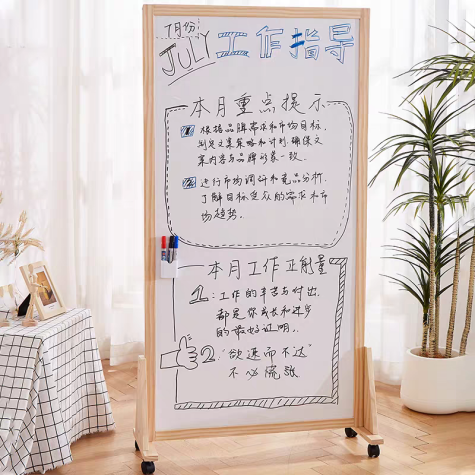 7月份:
JULY 工作指导
本月重点提示
1 根据品牌需求和市场目标,
制定文案策略和计划,确保文
案内容与品牌形象一致.
2 进行市场调研和竞品分析,
了解目标受众的需求和市
场趋势.
本月工作正能量
1:工作的辛苦与付出,
都是你成长和进步
的最好证明.
2."欲速而不达"
不必慌张